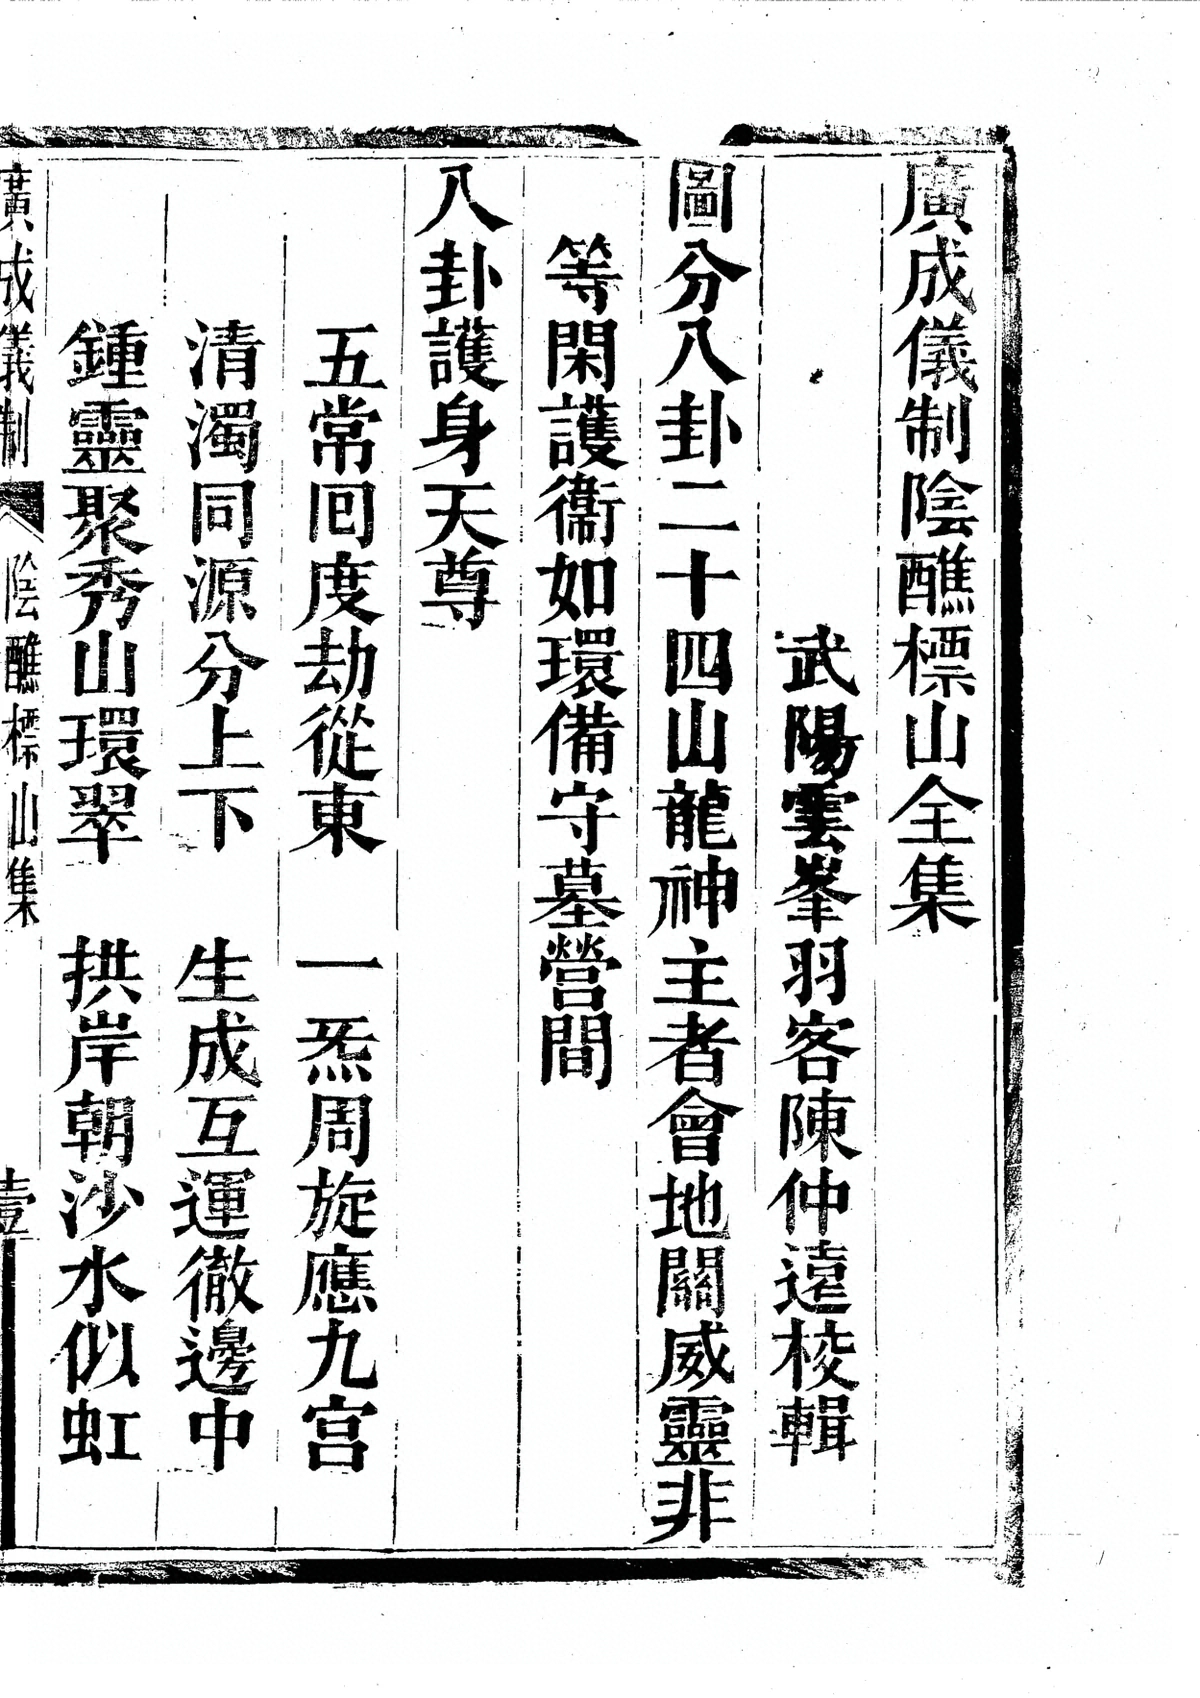 廣成儀制陰醮標山全集
武陽雲峯羽客陳仲遠校輯
圖分八卦二十四山龍神主者會地關威靈非
等閑護衞如環備守墓營間
八卦護身天尊
五常回度劫從東　一炁周旋應九宮
清濁同源分上下　生成互運徹邊中
鍾靈聚秀山環翠　拱岸朝沙水似虹
廣成儀制　陰醮標山集　壹